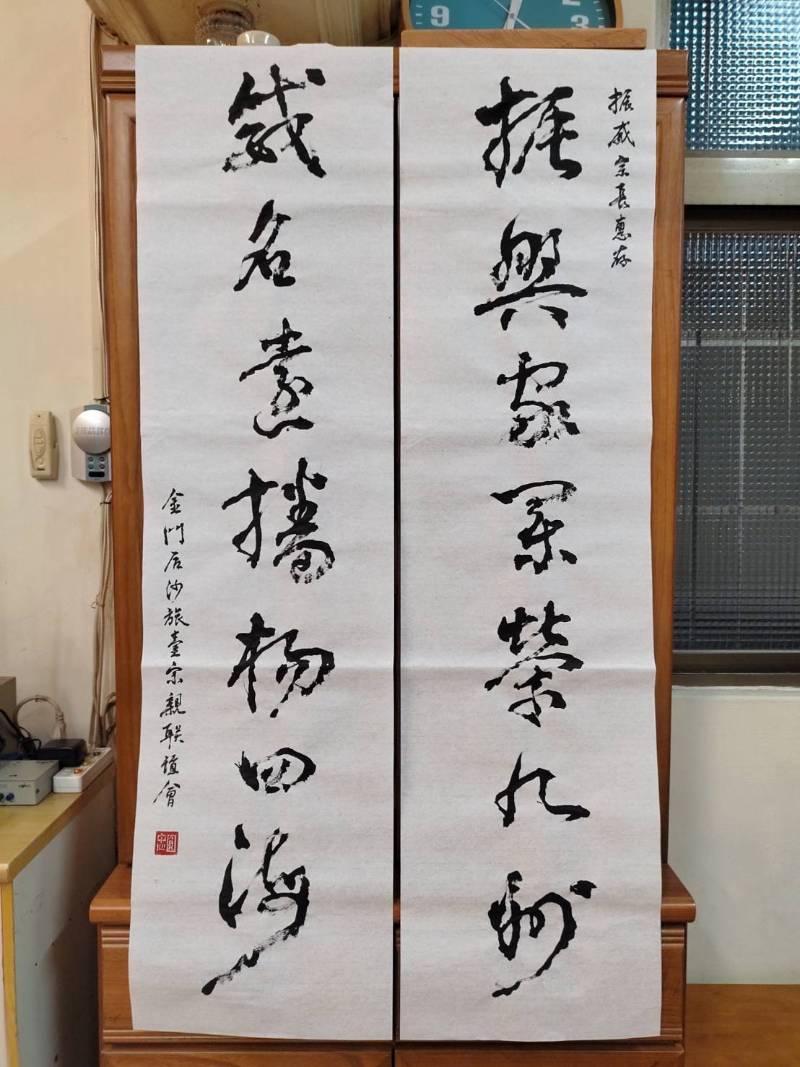 振威宗長惠存
振興家業榮九州
威名遠播揚四海
金門后沙旅臺宗親联誼會
9
3